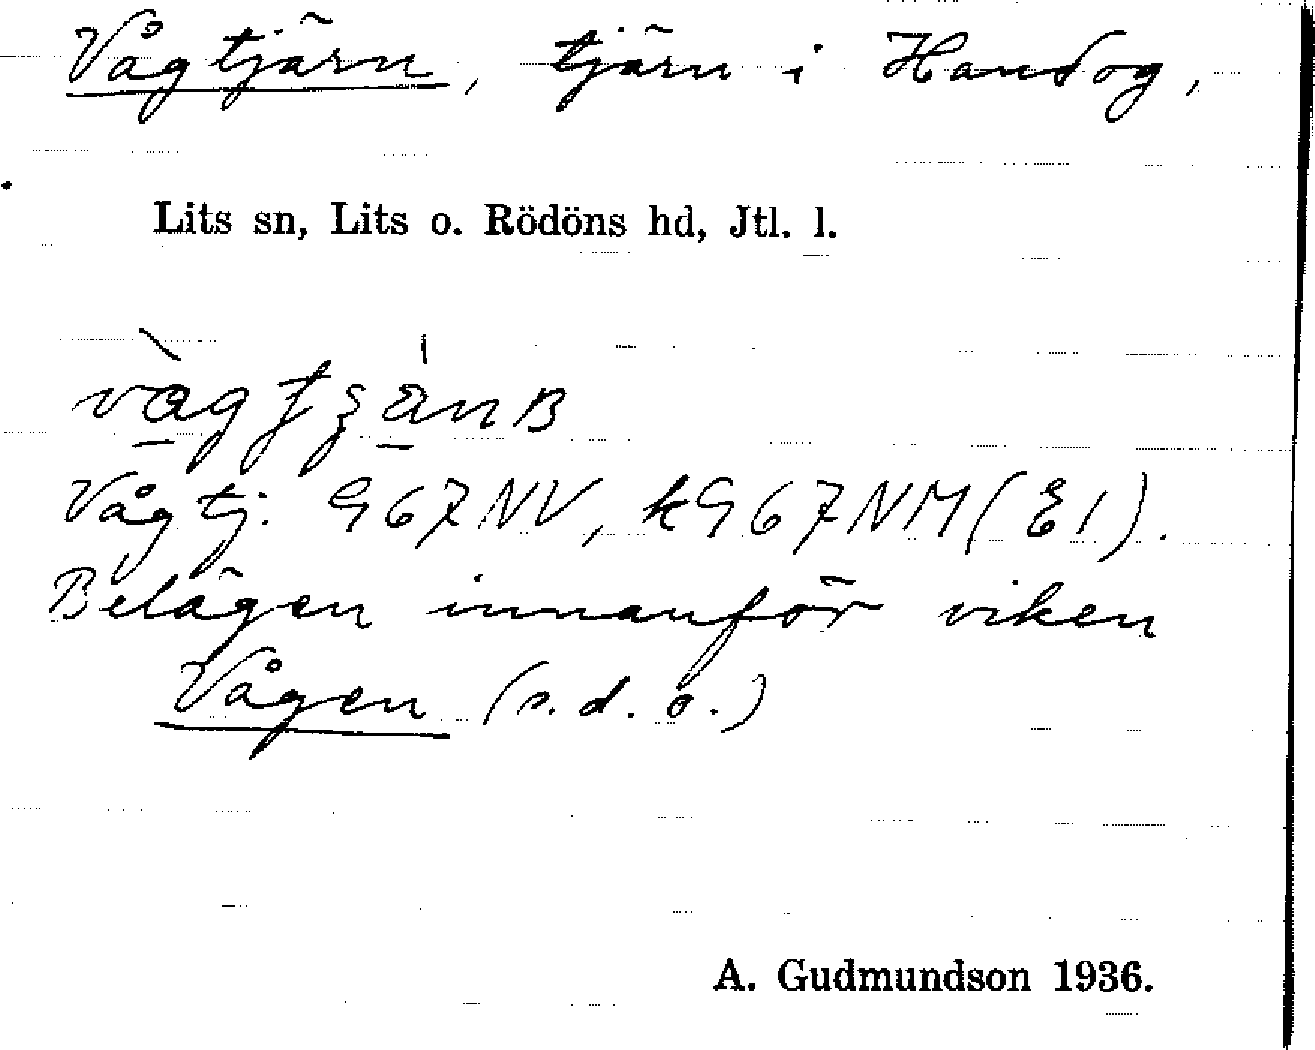 Vågtjärn, tjärn i Handog,
Lits sn, Lits o. Rödöns hd, Jtl. l.
Vågtj. 967NV, k967NM(E1).
Belägen innanför viken
Vågen (s.d.o.)
A. Gudmundson 1936.